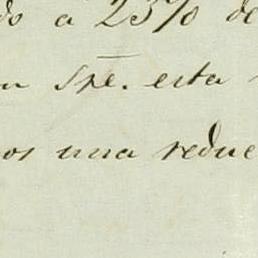 do a 25% de
n Spe. esta
os una reduc